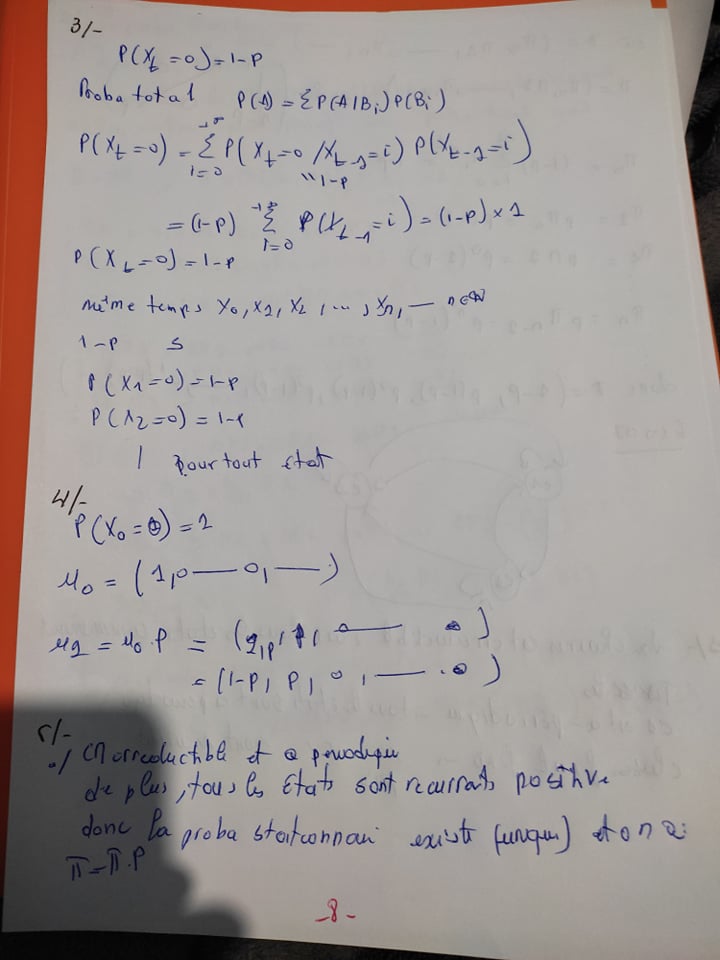 3/-
P(X_t = 0) = 1-p
Proba total P(A) = Σ P(A|B_i) P(B_i)
P(X_t = 0) = Σ_{i=0}^{+∞} P(X_t = 0 / X_{t-1} = i) P(X_{t-1} = i)
" 1-p
= (1-p) Σ_{i=0}^{+∞} P(X_{t-1} = i) = (1-p) × 1
P(X_t = 0) = 1-p
même temps X_0, X_1, X_2, ..., X_n, — n∈ℕ
1-p
P(X_1 = 0) = 1-p
P(X_2 = 0) = 1-p
| pour tout état
4/-
P(X_0 = 0) = 1
μ_0 = (1, 0 — 0, —)
μ_1 = μ_0 . P = ( , 0 — 0)
= (1-p, p, 0, — . 0)
5/-
./ CM irreductible et a periodique
de plus, tous les états sont recurrats positive
donc la proba stationnari existe (unique) et on a:
π = π.P
-8-